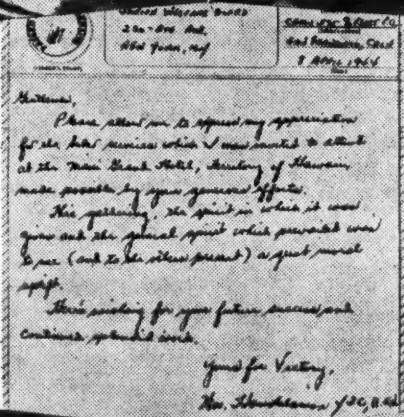 220 - 5th Ave.
New York, N.Y.
San Francisco, Calif.
8 April 1944
Gentlemen,
Please allow me to express my appreciation
for the Seder services which I was invited to attend
at the Maui Grand Hotel, Territory of Hawaii,
made possible by your generous efforts.
This gathering, the spirit in which it was
given and the general spirit which prevailed was
to me (and to the others present) a great moral
uplift.
Here's wishing for your future success and
continued splendid work.
Yours for Victory,